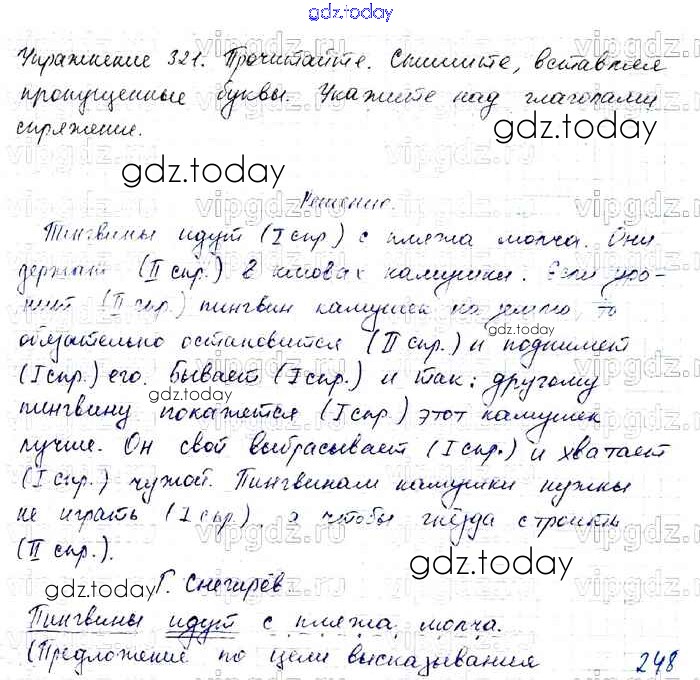 gdz.today
Упражнение 321. Прочитайте. Спишите, вставляя
пропущенные буквы. Укажите над глаголами
спряжение.
gdz.today
gdz.today
Решение.
Пингвины идут (I спр.) с пляжа молча. Они
держат (II спр.) в клювах камушки. Если уро-
нит (II спр.) пингвин камушек на землю, то
gdz.today
обязательно остановится (II спр.) и поднимет
(I спр.) его. Бывает (I спр.) и так: другому
gdz.today
пингвину покажется (I спр.) этот камушек
лучше. Он свой выбрасывает (I спр.) и хватает
(I спр.) чужой. Пингвинам камушки нужны
не играть (I спр.), а чтобы гнёзда строить
(II спр.).
gdz.today
gdz.today
Г. Снегирёв.
Пингвины идут с пляжа молча.
(Предложение по цели высказывания
248